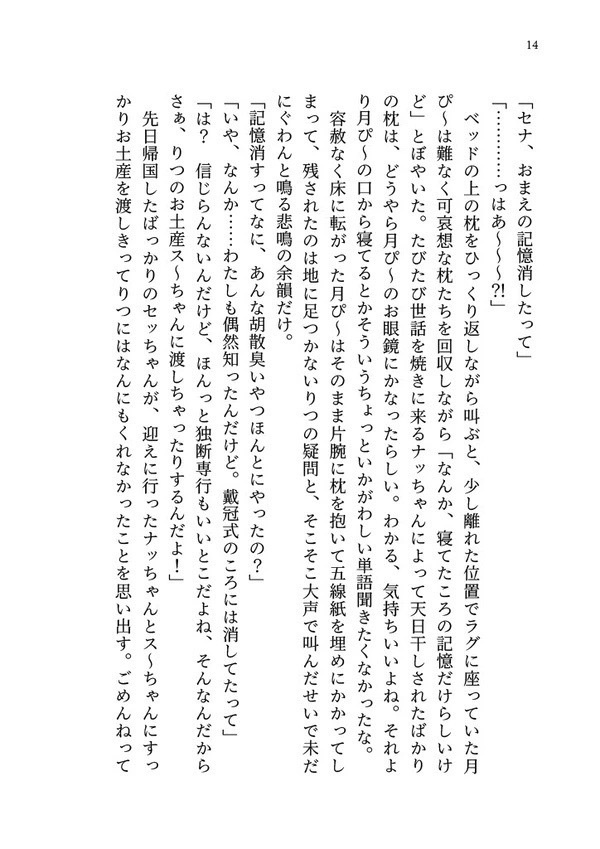 14
「セナ、おまえの記憶消したって」
「…………っはあ〜〜〜?!」
　ベッドの上の枕をひっくり返しながら叫ぶと、少し離れた位置でラグに座っていた月
ぴ〜は難なく可哀想な枕たちを回収しながら「なんか、寝てたころの記憶だけらしいけ
ど」とぼやいた。たびたび世話を焼きに来るナッちゃんによって天日干しされたばかり
の枕は、どうやら月ぴ〜のお眼鏡にかなったらしい。わかる、気持ちいいよね。それよ
り月ぴ〜の口から寝てるとかそういうちょっといかがわしい単語聞きたくなかったな。
　容赦なく床に転がった月ぴ〜はそのまま片腕に枕を抱いて五線紙を埋めにかかってし
まって、残されたのは地に足つかないりつの疑問と、そこそこ大声で叫んだせいで未だ
にぐわんと鳴る悲鳴の余韻だけ。
「記憶消すってなに、あんな胡散臭いやつほんとにやったの？」
「いや、なんか……わたしも偶然知ったんだけど。戴冠式のころには消してたって」
「は？　信じらんないんだけど、ほんっと独断専行もいいとこだよね、そんなんだから
さぁ、りつのお土産ス〜ちゃんに渡しちゃったりするんだよ！」
　先日帰国したばっかりのセッちゃんが、迎えに行ったナッちゃんとス〜ちゃんにすっ
かりお土産を渡しきってりつにはなんにもくれなかったことを思い出す。ごめんねって